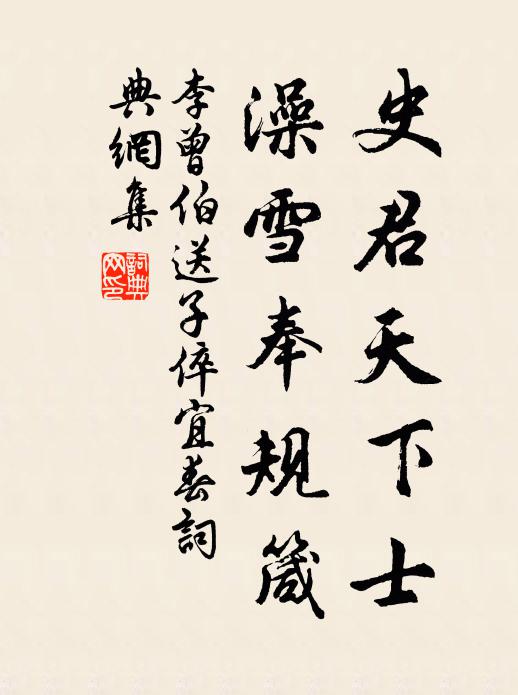 史君天下士
澡雪奉規箴
李曾伯送子倅宜春詞
典網集
詞典
网印